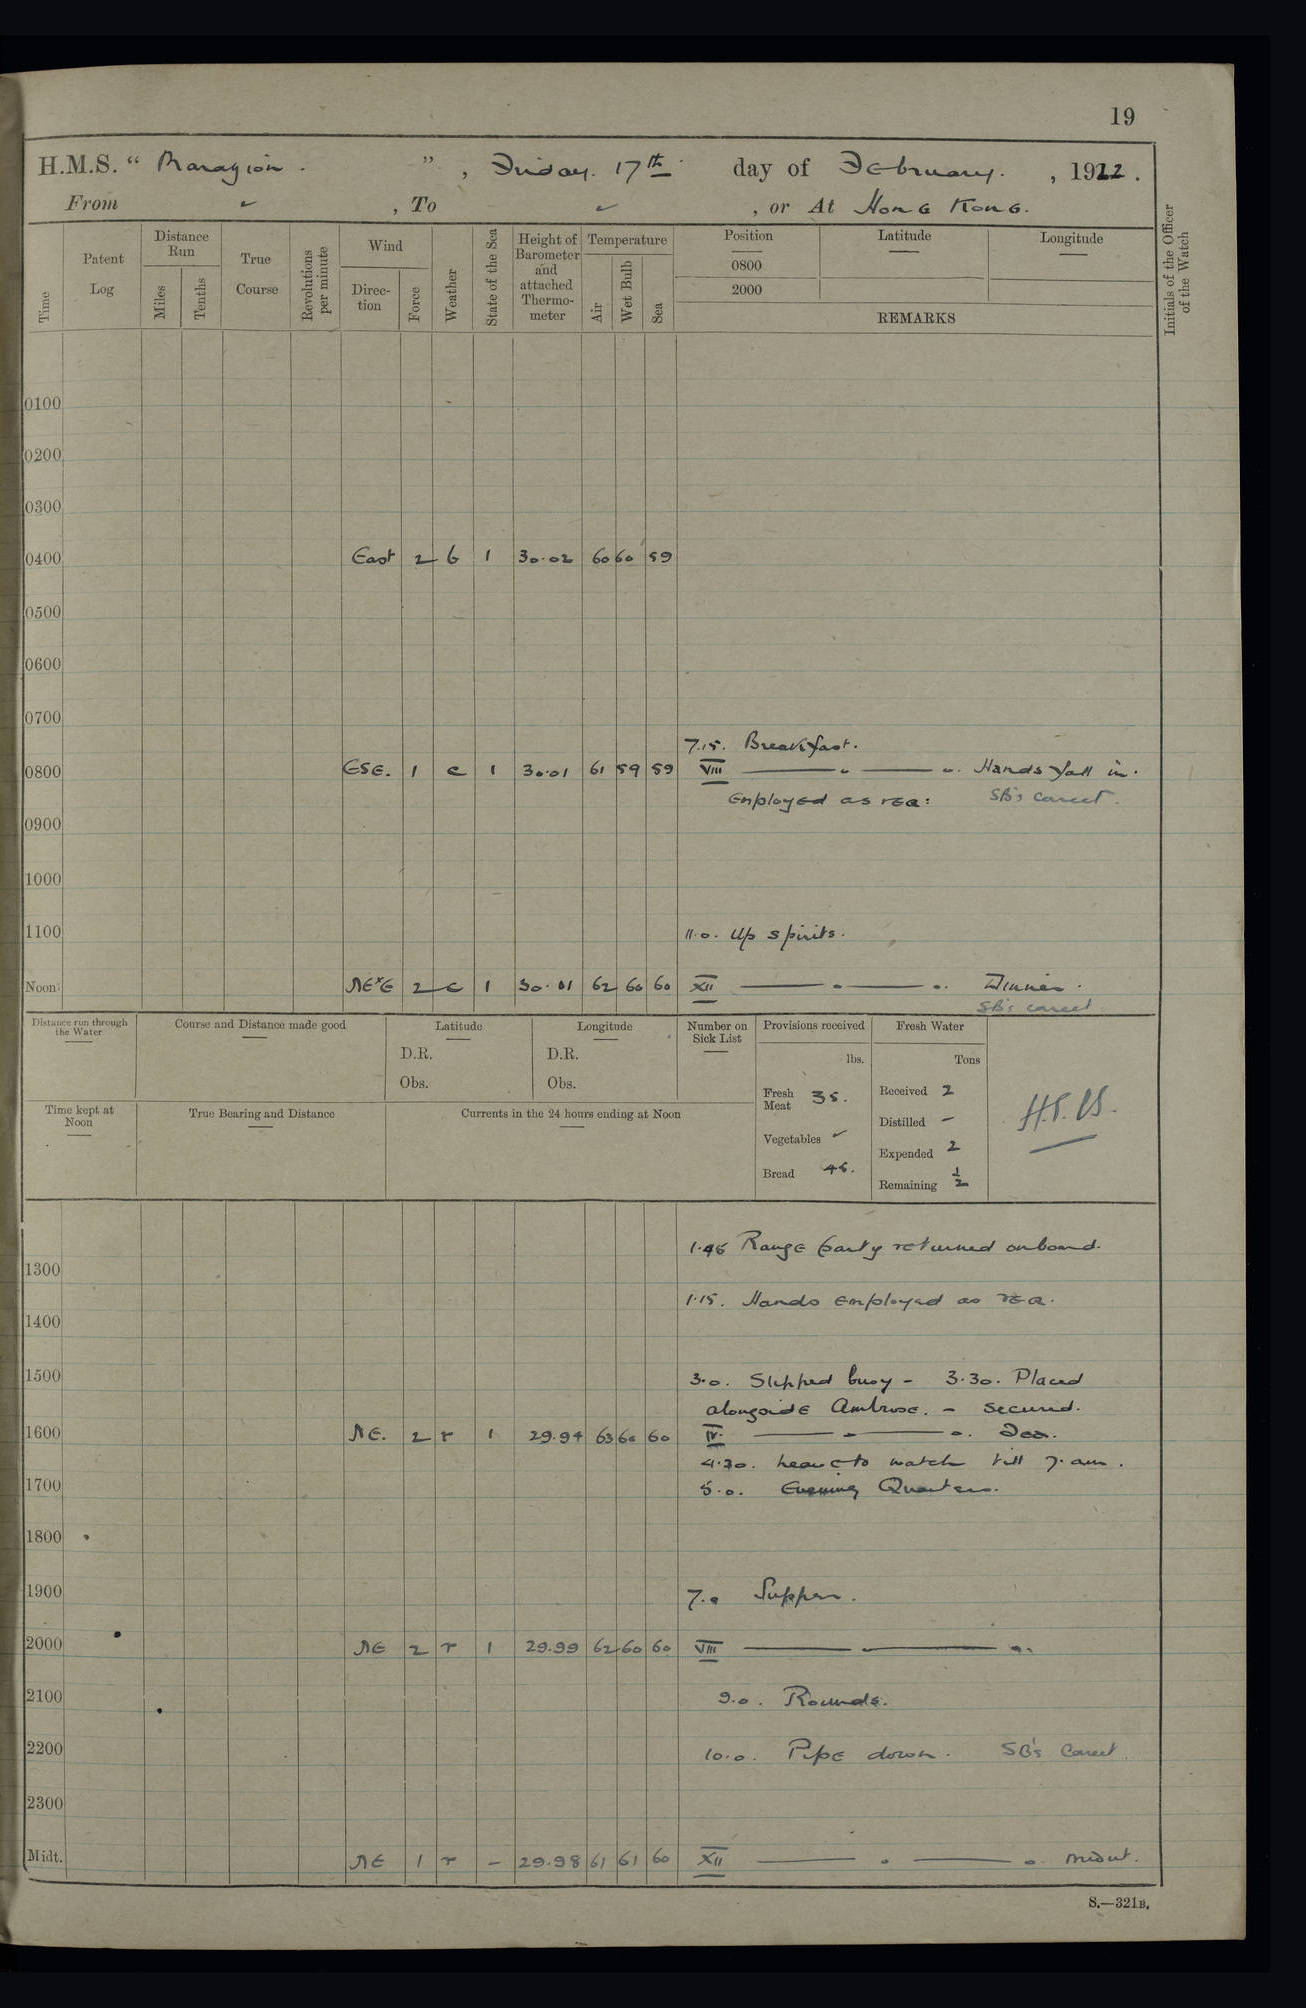 19
H.M.S. “ Marazion. ” , Friday. 17th day of February. , 1922.
From ✓ , To ✓ , or At Hong Kong.
Time
Patent Log
Distance Run
Miles
Tenths
True Course
Revolutions per minute
Wind
Direction
Force
Weather
State of the Sea
Height of Barometer and attached Thermometer
Temperature
Air
Wet Bulb
Sea
Position
0800
2000
Latitude
Longitude
REMARKS
Initials of the Officer of the Watch
0100
0200
0300
0400 East 2 b 1 30.02 60 60 59
0500
0600
0700
7.15. Breakfast.
0800 ESE. 1 c 1 30.01 61 59 59 VIII Hands fall in.
Employed as req: SB's correct.
0900
1000
1100 11.0. Up spirits.
Noon NExE 2 c 1 30.01 62 60 60 XII Dinner.
SB's correct
Distance run through the Water
Course and Distance made good
Latitude
D.R.
Obs.
Longitude
D.R.
Obs.
Number on Sick List
Provisions received
lbs.
Fresh Meat 35.
Vegetables ✓
Bread 45.
Fresh Water
Tons
Received 2
Distilled –
Expended 2
Remaining ½
Time kept at Noon
True Bearing and Distance
Currents in the 24 hours ending at Noon
1.45 Range party returned onboard.
1300
1.15. Hands employed as req.
1400
1500 3.0. Slipped buoy – 3.30. Placed
alongside Ambrose. – Secured.
1600 NE. 2 r 1 29.94 63 60 60 IV.
4.30. to watch till 7. am.
1700 5.0. Evening Quarters.
1800
1900 7.0 Supper.
2000 NE 2 r 1 29.99 62 60 60 VIII
2100 9.0. Rounds.
2200 10.0. Pipe down. SB's Correct.
2300
Midt. NE 1 r – 29.98 61 61 60 XII Midnt.
S.—321B.